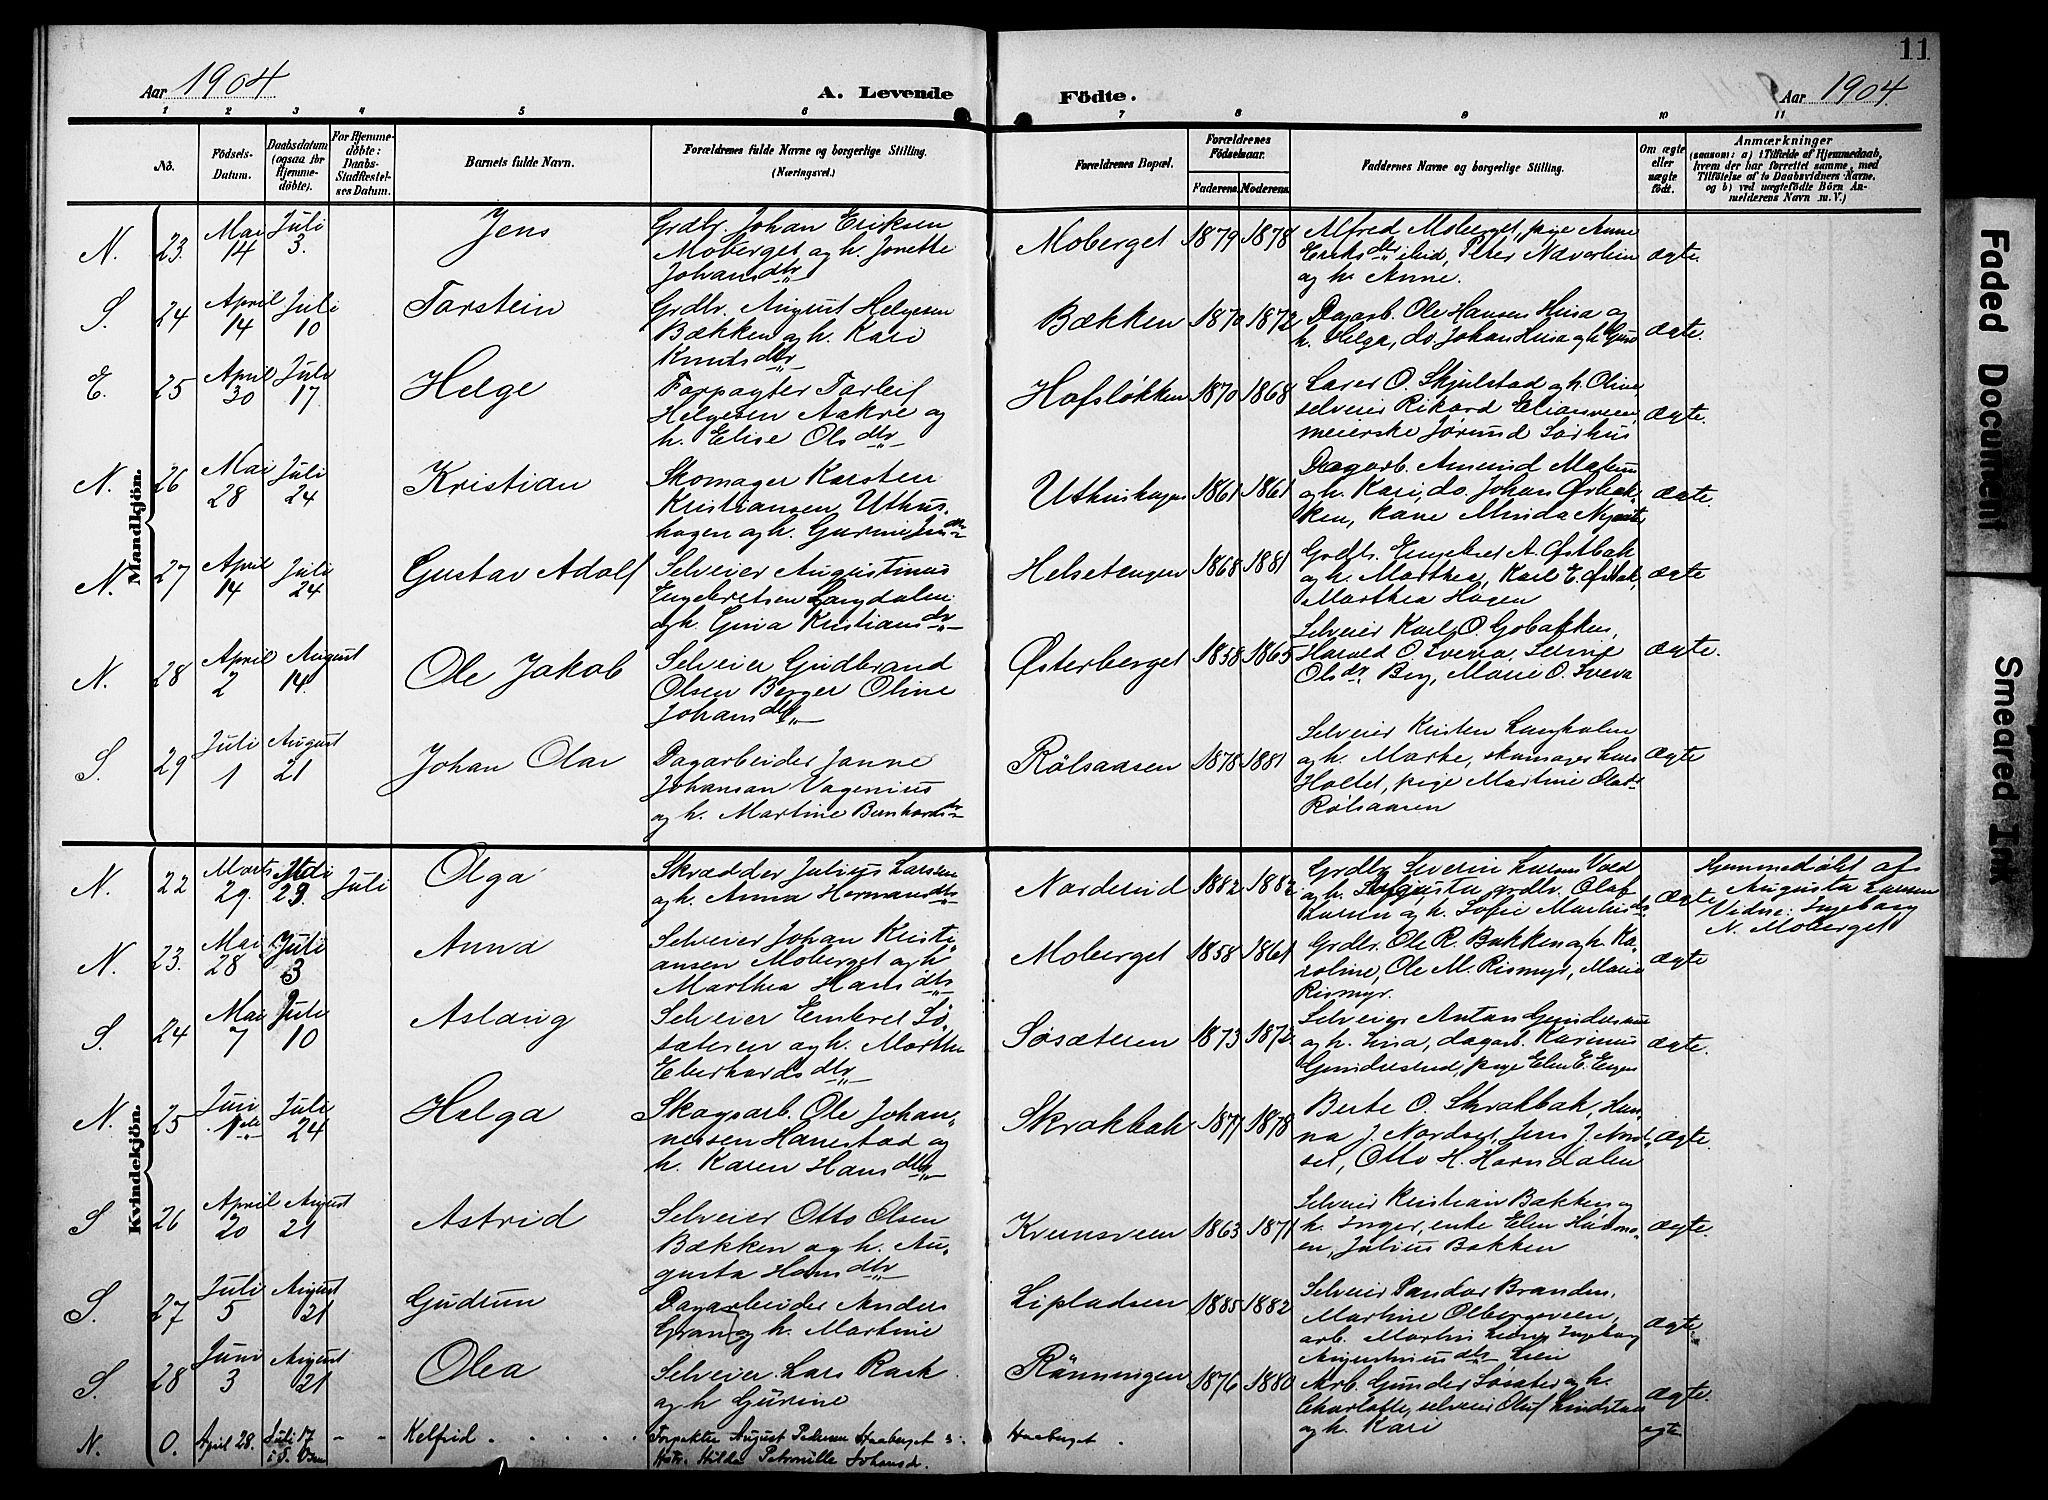 11
Aar 1904 A. Levende Födte. Aar 1904
1 2 3 4 5 6 7 8 9 10 11
No. Födsels-Datum. Daabsdatum (ogsaa for Hjemmedöbte). For Hjemmedöbte: Daabs-Stadfæstelses Datum. Barnets fulde Navn. Forældrenes fulde Navne og borgerlige Stilling. (Næringsvei.) Forældrenes Bopæl. Forældrenes Födselsaar. Faderens. Moderens. Faddernes Navne og borgerlige Stilling. Om ægte eller uægte födt. Anmærkninger (saasom: a) i Tilfælde af Hjemmedaab, hvem der har forrettet samme, med Tilföielse af to Daabsvidners Navne, og b) ved uægtefödte Börn Anmelderens Navn m. V.)
Mandkjön.
N. 23. Mai 14 Juli 3. Jens Grdbr. Johan Eriksen Moberget og h. Jonette Johansdtr Moberget 1879 1878 Alfred Moberget, pige Anne Eriksdtr ibid, Peter Næverlien og h. Anne. ægte.
S. 24 April 14 Juli 10 Torstein Grdbr. August Helgesen Bækken og h. Kari Knutsdtr Bækken 1870 1872 Dagarb. Ole Hansen Husa og h. Helga, do. Johan Husa og h. ægte.
E. 25 April 30 Juli 17 Helge Forpagter Torleif Helgesen Aakre og h. Elise Olsdtr Hofsløkken 1870 1868 Lærer O. Skjulstad og h. Oline, selveier Rikard Eliasveen, meierske Jørund Sørhus ægte.
N. 26 Mai 28 Juli 24 Kristian Skomager Karsten Kristiansen Uthushagen og h. Uthushagen 1861 1861 Dagarb. Amund og h. Kari, do. Johan Østbakken, Minda ægte.
N. 27 April 14 Juli 24 Gustav Adolf Selveier Augustinus Engebretsen Langdalen og h. Gina Kristiansdtr Helsetengen 1868 1881 Grdbr. Engebret A. Østbak og h. Marthea, Karl E. Østbak, Marthea Hagen ægte.
N. 28 April 2 August 14 Ole Jakob Selveier Gudbrand Olsen Berg og Oline Johansdtr Østerberget 1858 1865 Selveier Karl O. Gobakken, Harald O. Sveen, Olsdr Berg, Marie O. Sveen ægte.
S. 29 Juli 1 August 21 Johan Olav Dagarbeider Janne Johansen Vagenius og h. Martine Bernhardsdtr Rölsaasen 1878 1881 Selveier Kristen Langholen og h. Marte, skomager Lars Holtet, pige Martine Olsdtr Rölsaasen ægte
Kvindekjön.
N. 22 Marts 29. 29. Juli Olga Skrædder Julius Larsen og h. Anna Hermansdtr Nordsind 1882 1882. Grdbr Severin Larsen Vold og h. Augusta, grdbr. Olaf Larsen og h. Sofie Martinsdtr ægte Hjemmedøbt af Augusta Larsen Vidne: Ingeborg N. Moberget
N. 23. Mai 28 Juli 3 Anna Selveier Johan Kristiansen Moberget og h Marthea Hansdtr Moberget 1858 1861 Grdbr. Ole R. Bakken og h. Karoline, Ole M. Rismyr, Marie Rismyr. ægte
S. 24 Mai 7 Juli 10 Aslaug Selveier Embret Søsæteren og h. Marthe Eberhardsdtr Søsæteren 1873 1872 Selveier Anton Gundersen og h. Lina, dagarb. Karinius Gundersrud, pige Elen E. Engen ægte.
N. 25 Juni 1ste Juli 24 Helga Skogsarb. Ole Johannessen Hanestad og h. Karen Hansdtr Skrakbak 1877 1878 Berte O. Skrakbak, Hanna J. Nordset, Jens J. Nordset, Otto H. Horndalen ægte.
S 26 April 20 August 21 Astrid Selveier Otto Olsen Bækken og h. Augusta Hansdtr Kvernsveen 1863 1871 Selveier Kristian Bakken og h. Inger, enke Elen, Julius Bakken ægte.
S. 27 Juli 5 August 21 Gudrun Dagarbeider Anders Gran og h. Martine Lipladsen 1885 1882 Selveier Pandor Branden, Martine Olbergsveen, arb. Martin Lien, Ingeborg Augustinusdtr Lien ægte.
S. 28 Juni 3 August 21 Olea Selveier Lars Rask og h Gurine Rönningen 1876 1880 Arb. Gunder Søsæter og h. Charlotte, selveier Oluf Lindstad og h. Kari ægte.
N. 0. April 28. Juli 17 Kelfrid Forpakter August Pedersen Haaberget Hstr. Hilda Petronille Johansdr. Haaberget. egte
Faded Document
Smeared Ink